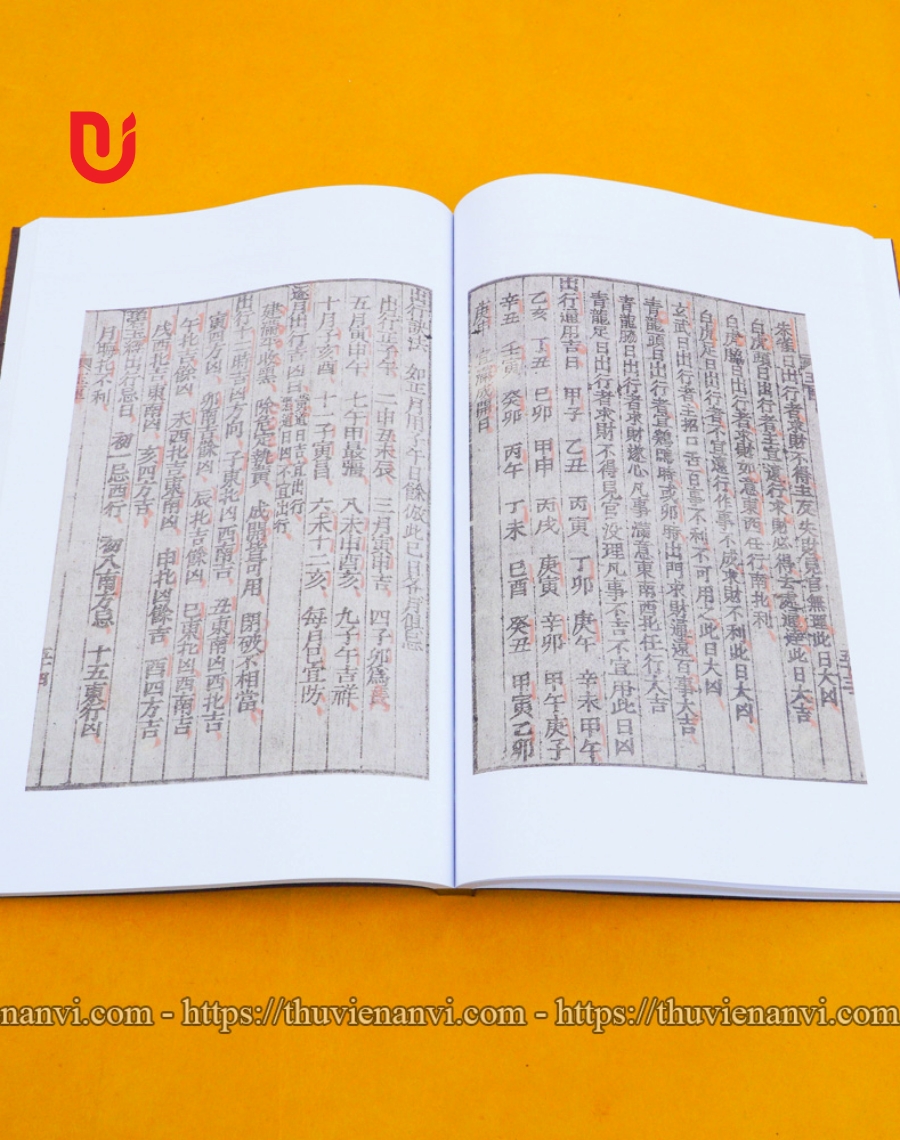 朱雀日出行者求財不得主反失財見官無理此日大凶
白虎頭日出行者主宜遠行求財必得去處通達此日大吉
白虎脇日出行者求財如意東西任行南北利
白虎足日出行者不宜遠行作事不成求財不利此日大凶
玄武日出行者主招口舌百事不利不可用之此日大凶
青龍頭日出行者宜鷄鳴時或卯時出門求財通達百事大吉
青龍脇日出行者求財遂心凡事滿意東南西北任行大吉
青龍足日出行者求財不得見官没理凡事不吉不宜用此日凶
出行通用吉日 甲子 乙丑 丙寅 丁卯 庚午 辛未 甲午
乙亥 丁丑 己卯 甲申 丙戌 庚寅 辛卯 甲午 庚子
辛丑 壬寅 癸卯 丙午 丁未 己酉 癸丑 甲寅 乙卯
成開日
出行訣法 如正月用子午日餘倣此
出行正子午 二丑未辰 三月寅申吉 四子卯爲
五月寅申午 七午甲最強 八木申酉亥 九子午吉祥
十月子亥酉 十一子寅昌 六未十二亥 每月日宜防
逐月出行吉凶日 黃道日吉宜出行 黑道日凶不宜出行
建滿平收黑 除危定執黃 成開皆可用 閉破不相當
出行十二時吉凶方向 子東北凶西南吉 丑東南凶西北吉
寅西方凶 卯南吉餘凶 辰北吉餘凶 巳東北凶西南吉
午北吉餘凶 未西北吉東南凶 申北凶餘吉 酉四方吉
戌西北吉東南凶 亥四方吉
出行忌日 初一忌西行 初八南方忌 十五東行凶
月晦北不利
nanvi.com - https://thuvienanvi.com - https://thuvienanvi.com